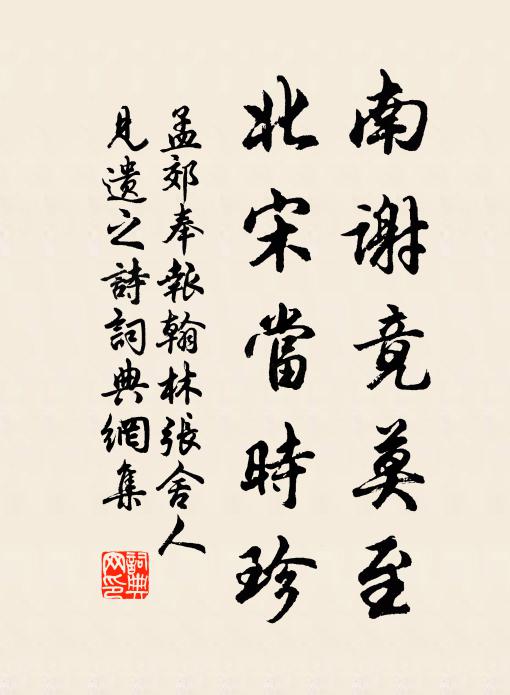 南謝竟莫至
北宋當時珍
孟郊奉報翰林張舍人
見遺之詩詞典網集
詞典
网印